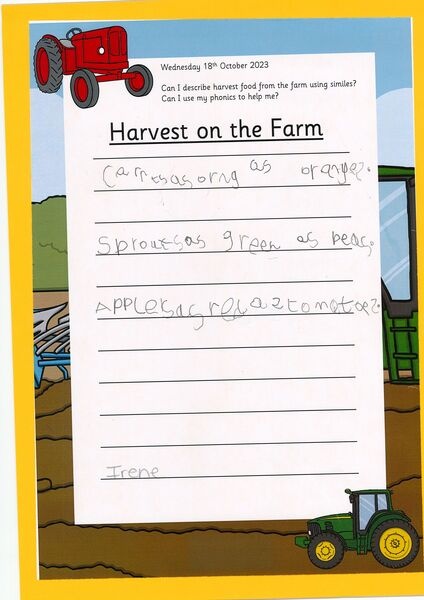 Wednesday 18th October 2023
Can I describe harvest food from the farm using similes?
Can I use my phonics to help me?
Harvest on the Farm
as orng as
Sproutsas green as peas.
Applesas red as tomatoes.
Irene